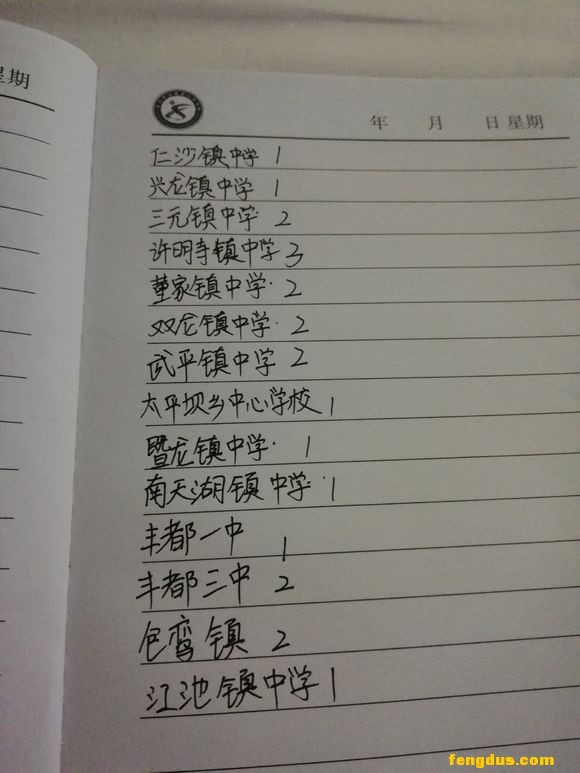 星期
年 月 日 星期
仁沙镇中学 1
兴龙镇中学 1
三元镇中学 2
许明寺镇中学 3
董家镇中学 2
双龙镇中学 2
武平镇中学 2
太平坝乡中心学校 1
暨龙镇中学 1
南天湖镇中学 1
丰都一中 1
丰都三中 2
包鸾镇 2
江池镇中学 1
fengdus.com